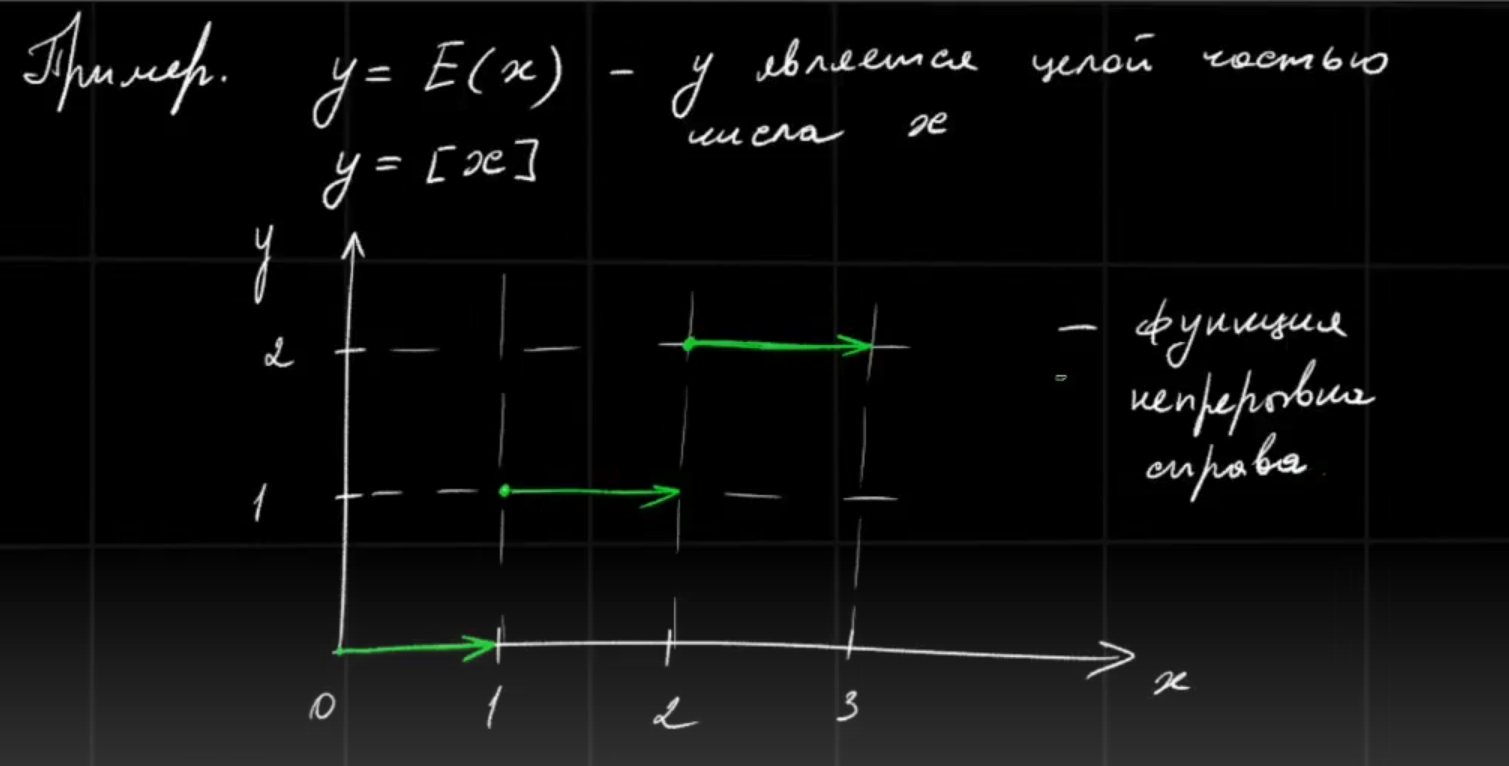 Пример. y = E(x) – y является целой частью
числа x
y = [x]
y
2
1
– функция
непрерывна
справа.
0 1 2 3 x